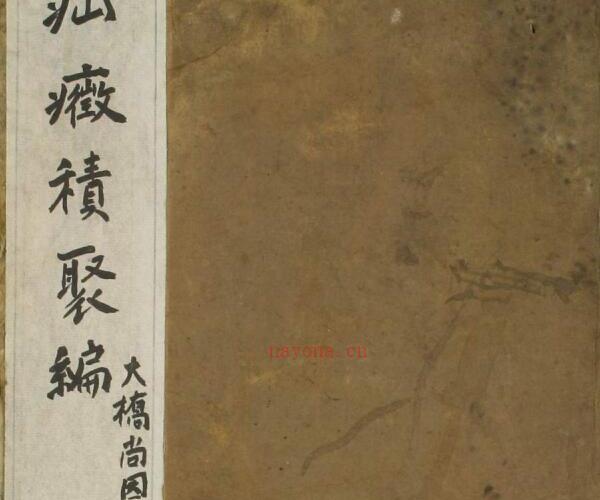 疝癥積聚編
大橋尚因
nayona.cn